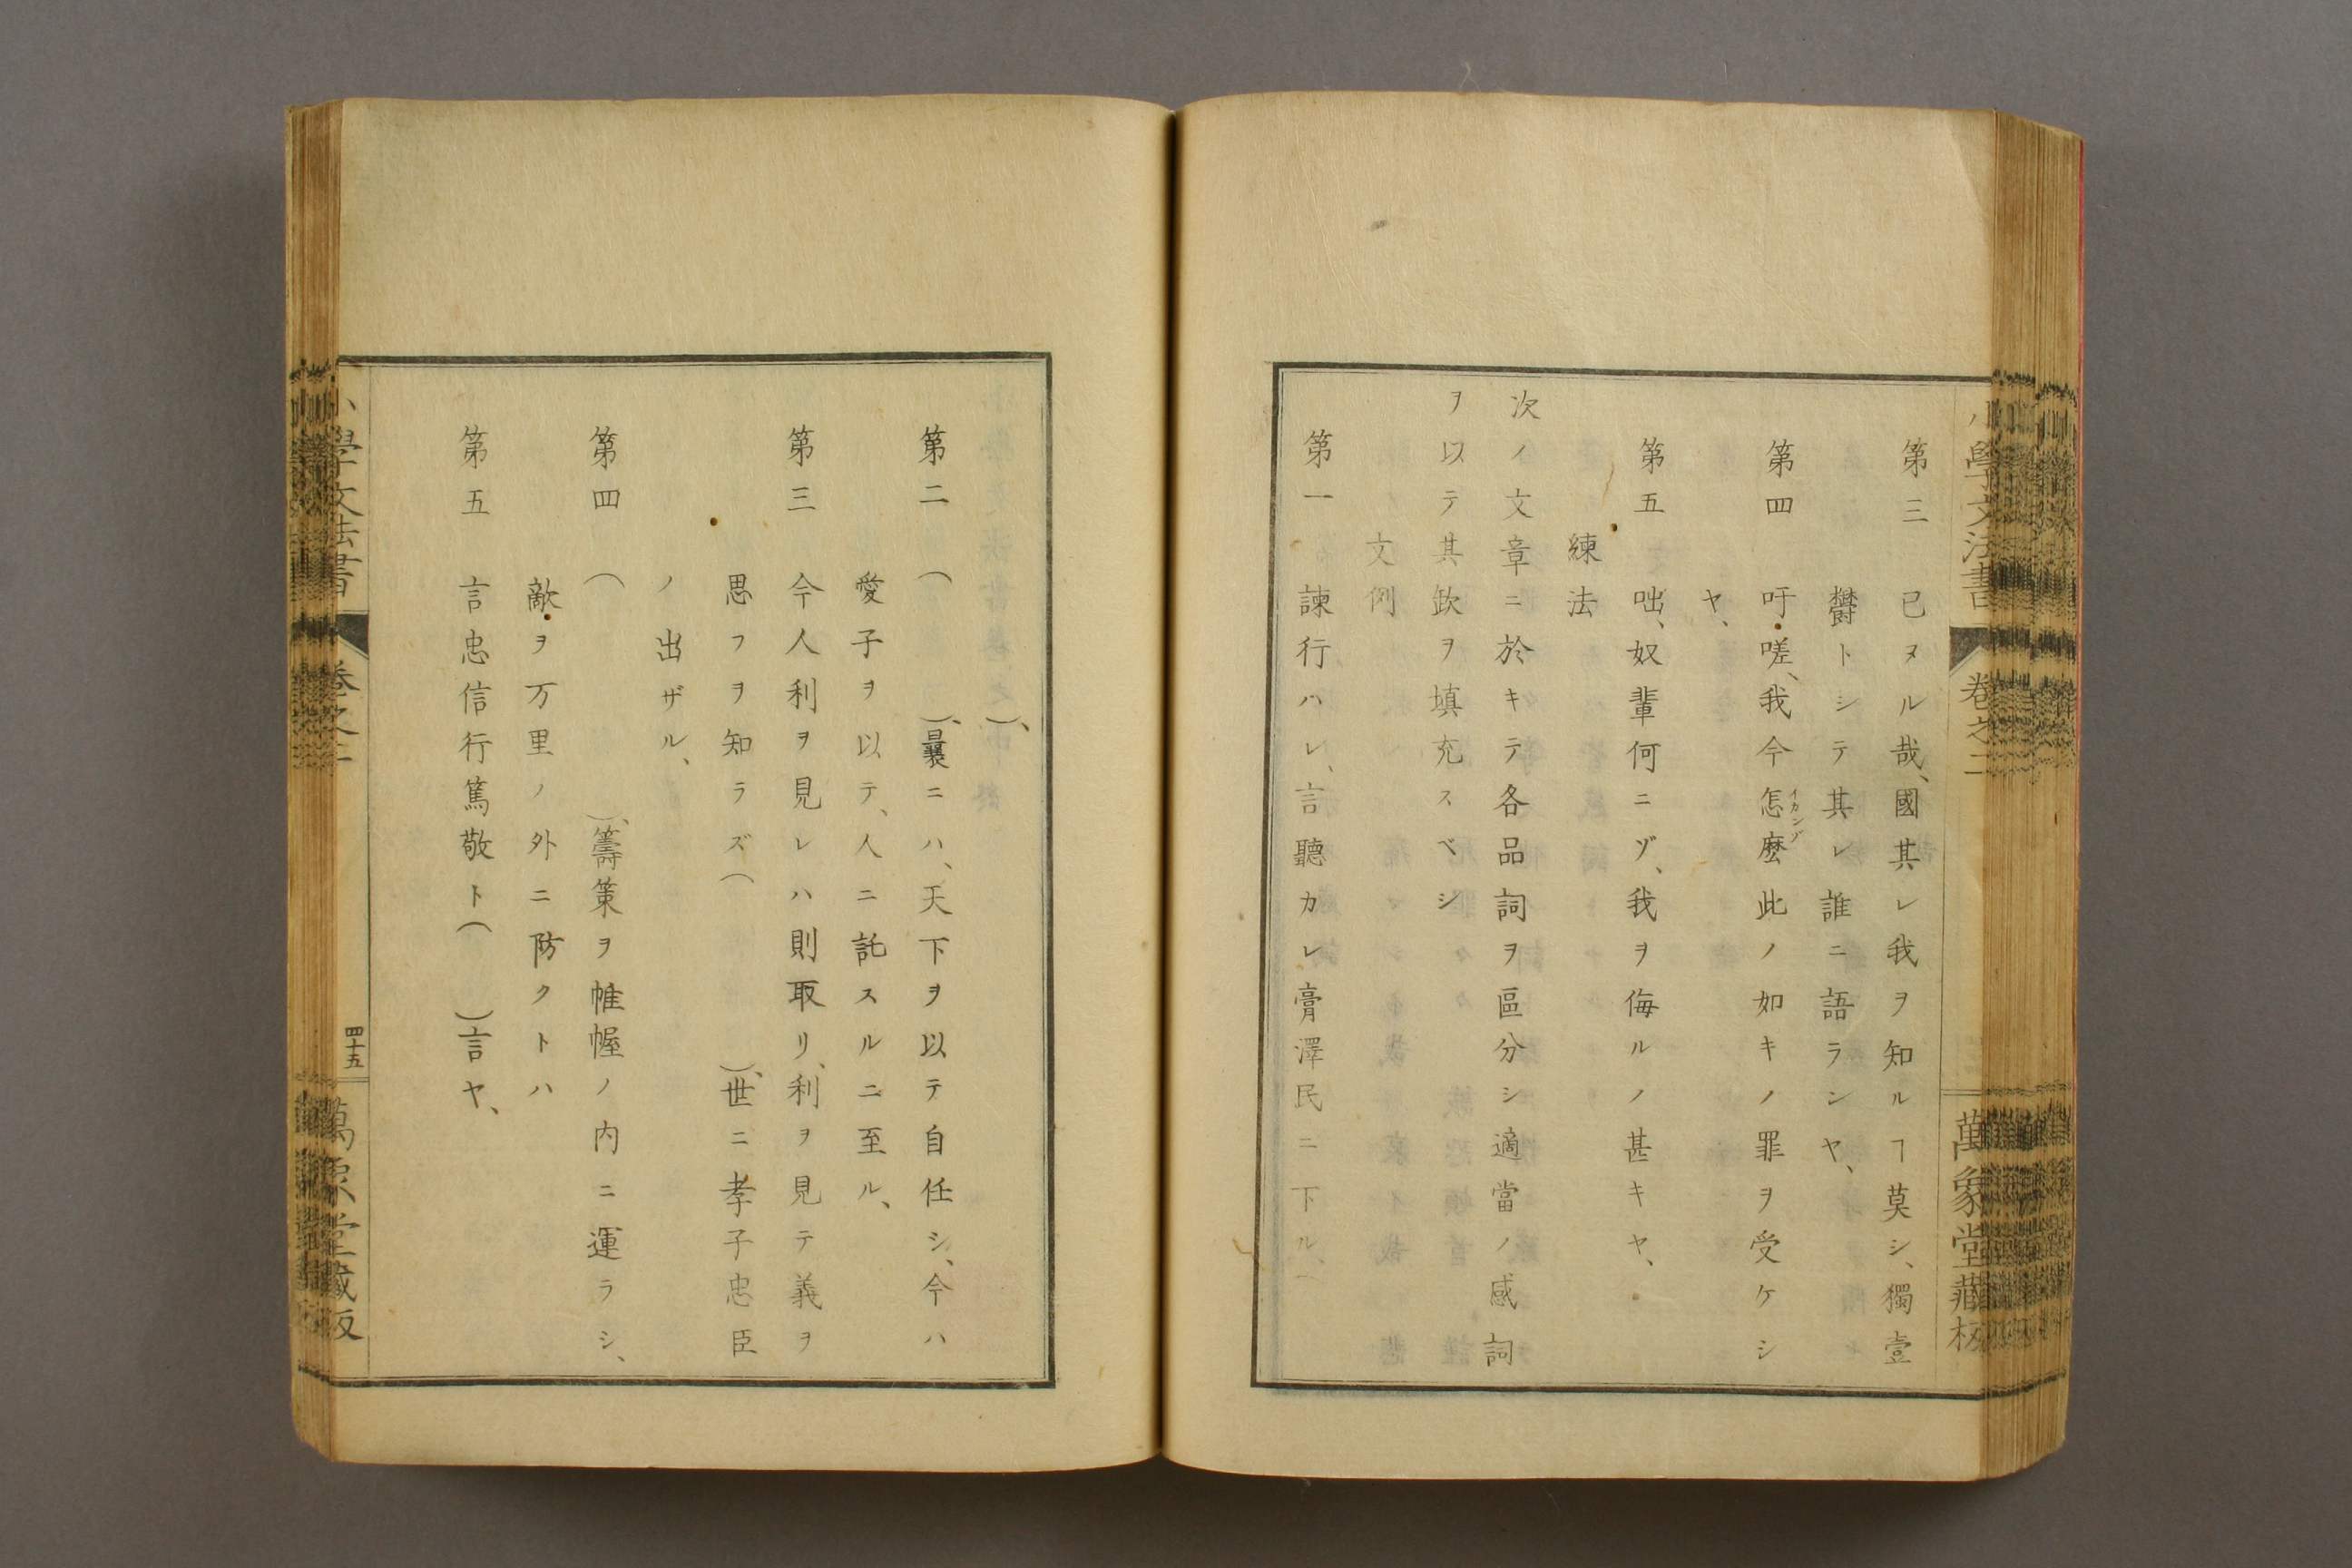 小學文法書 卷之二 萬象堂藏板
第三 已ヌル哉、國其レ我ヲ知ルヿ莫シ、獨壹
鬱トシテ其レ誰ニ語ランヤ、
第四 吁嗟、我今怎麼此ノ如キノ罪ヲ受ケシ
イカンゾ
ヤ、
第五 咄、奴輩何ニゾ、我ヲ侮ルノ甚キヤ、
練法
次ノ文章ニ於キテ各品詞ヲ區分シ適當ノ感詞
ヲ以テ其欽ヲ填充スベシ
文例
第一 諫行ハレ、言聽カレ膏澤民ニ下ル、（
）、
第二（ ）、曩ニハ、天下ヲ以テ自任シ、今ハ
愛子ヲ以テ、人ニ託スルニ至ル、
第三 今人利ヲ見レハ則取リ、利ヲ見テ義ヲ
思フヲ知ラズ（ ）、世ニ孝子忠臣
ノ出ザル、
第四（ ）、籌策ヲ帷幄ノ内ニ運ラシ、
敵ヲ万里ノ外ニ防クトハ
第五 言忠信行篤敬ト（ ）言ヤ、
小學文法書 卷之二 四十五 萬象堂藏板